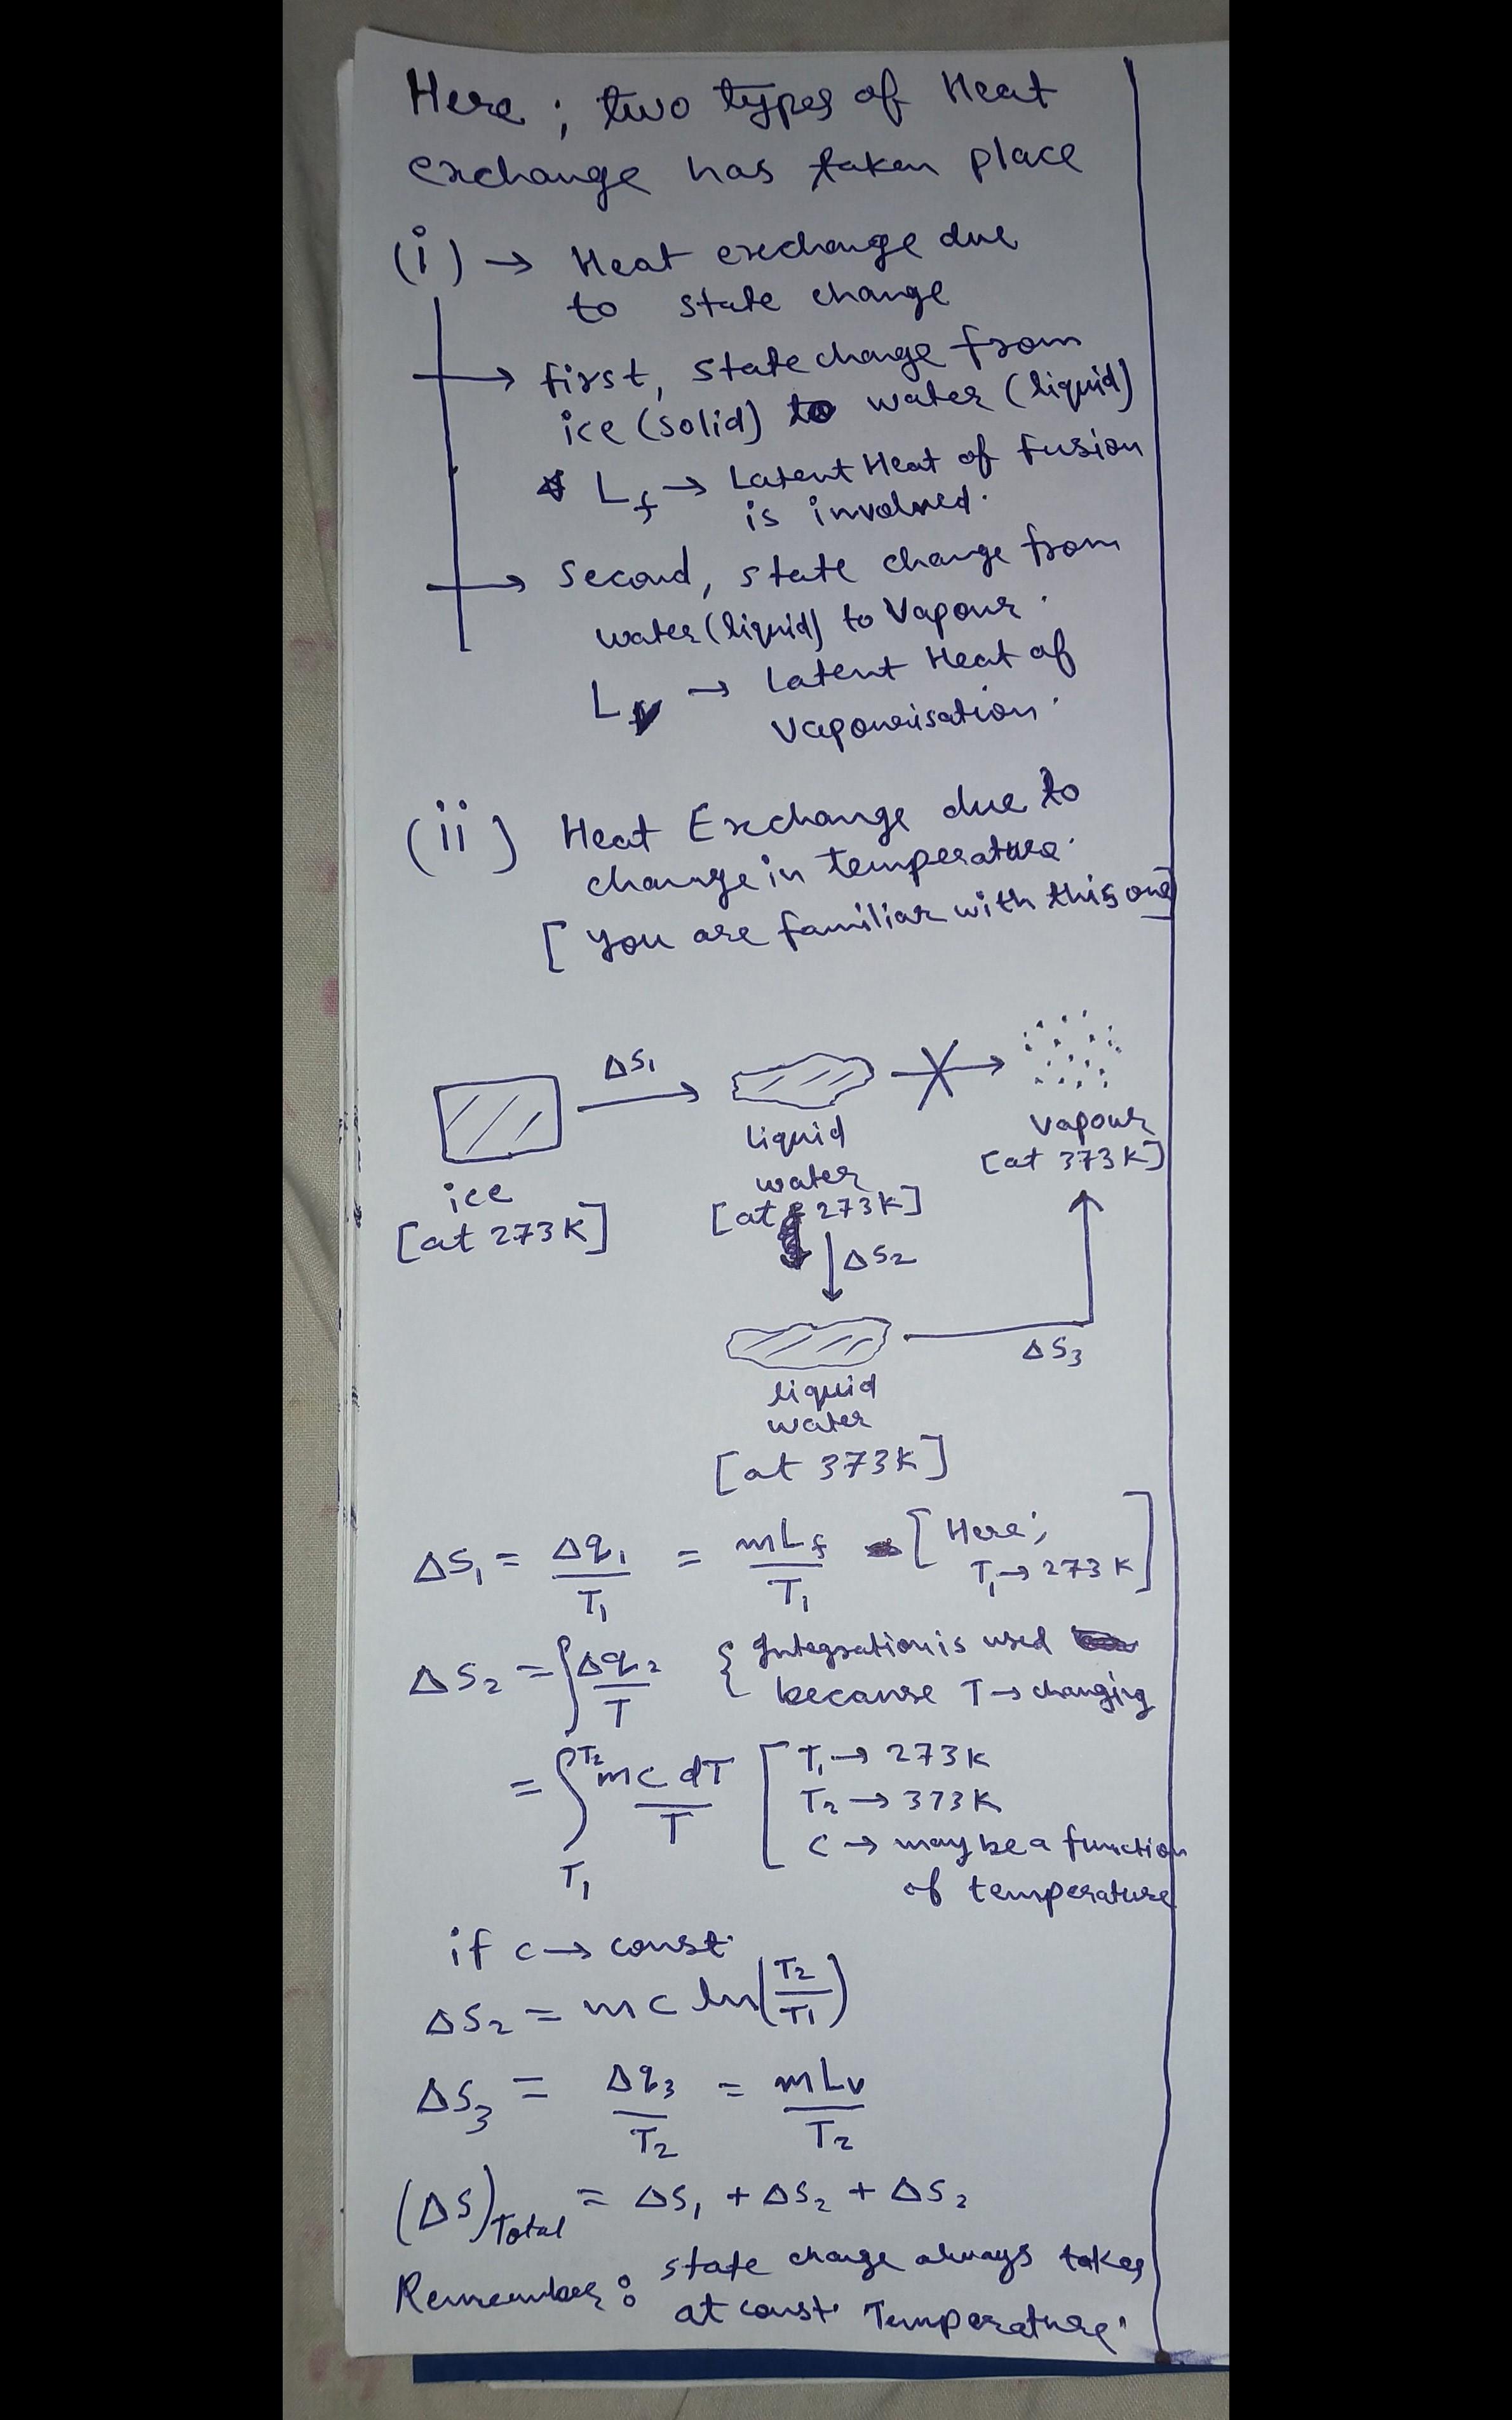 Here ; two types of Heat
exchange has taken place
(i) → Heat exchange due
to state change
→ first, state change from
ice (solid) to water (liquid)
L_f → Latent Heat of fusion
is involved.
→ Second, state change from
water (liquid) to Vapour.
L_v → Latent Heat of
Vapourisation.
(ii) Heat Exchange due to
change in temperature.
[ You are familiar with this one]
ΔS₁
liquid
water
[at 273K]
Vapour
[at 373K]
ice
[at 273K]
ΔS₂
ΔS₃
liquid
water
[at 373K]
ΔS₁ = Δq₁/T₁ = mL_f/T₁ [Here; T₁→273K]
ΔS₂ = ∫Δq₂/T { Integration is used
because T→changing
= ∫_{T₁}^{T₂} mc dT/T [ T₁ → 273K
T₂ → 373K
C → may be a function
of temperature
if c → const.
ΔS₂ = mc ln(T₂/T₁)
ΔS₃ = Δq₃/T₂ = mL_v/T₂
(ΔS)_Total = ΔS₁ + ΔS₂ + ΔS₂
Remember: state change always takes
at const. Temperature.